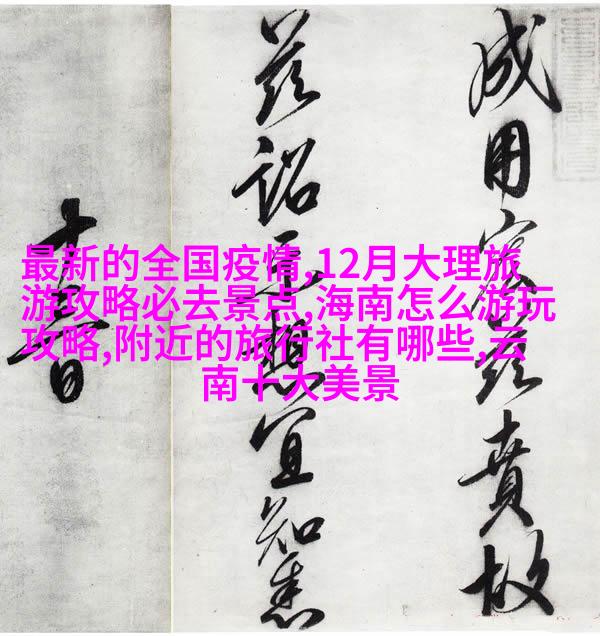 最新的全国疫情,12月大理旅
游攻略必去景点,海南怎么游玩
攻略,附近的旅行社有哪些,云
南十大美景
成用茲賁故
茲詔示想宜知悉
十日